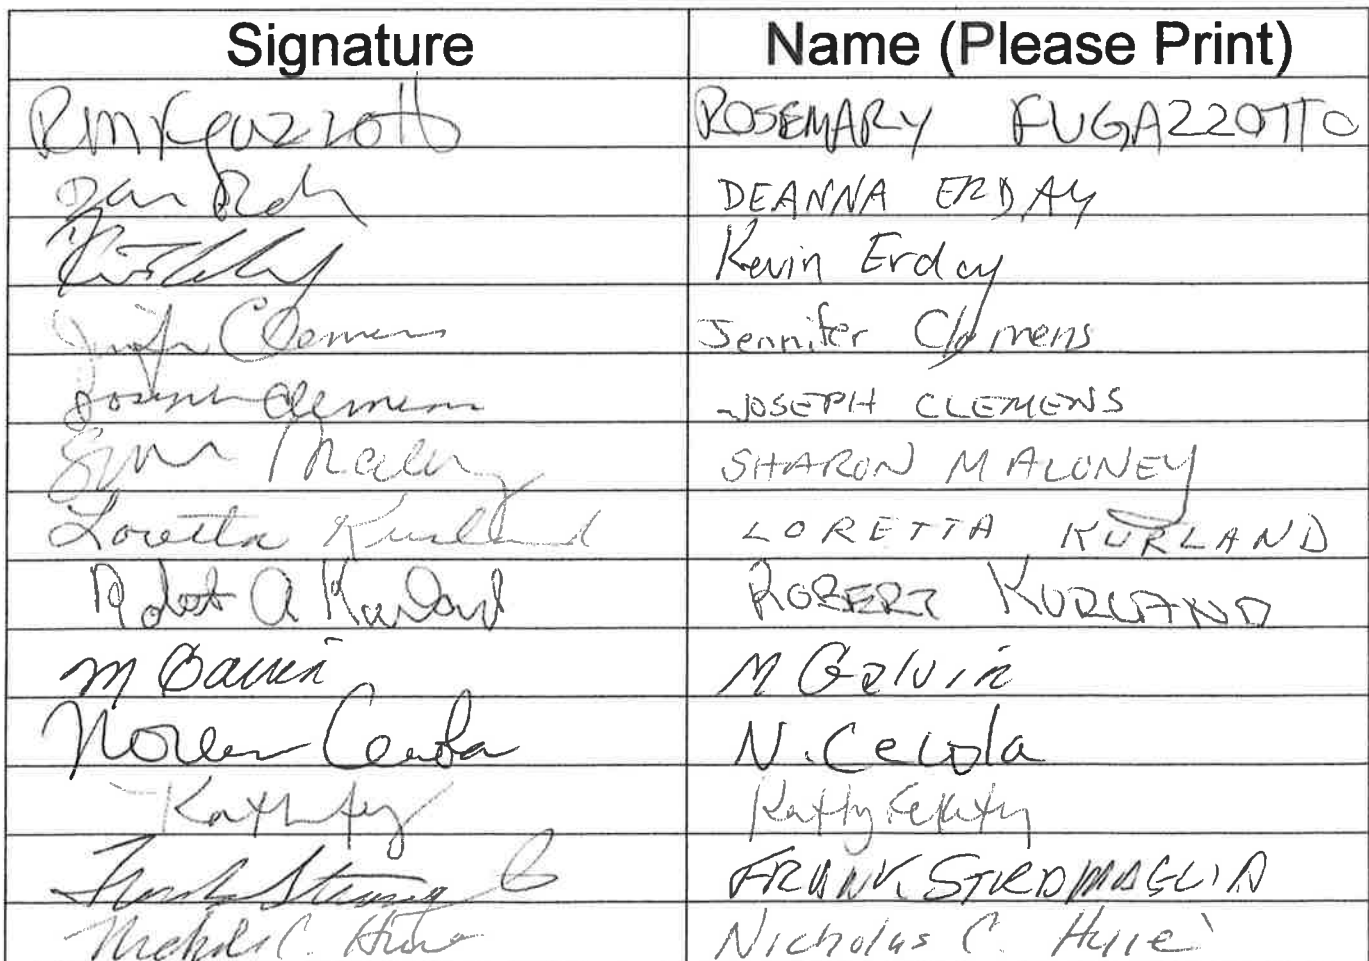 Signature Name (Please Print)
RMFugazzotto ROSEMARY FUGAZZOTTO
DEANNA ERDAY
Kevin Erday
Jennifer Clemens Jennifer Clemens
Joseph Clemens JOSEPH CLEMENS
SHARON MALONEY
Loretta Kurland LORETTA KURLAND
Robert A Kurland ROBERT KURLAND
M Galvin M Galvin
Noreen Cecola N. Cecola
Kathy
FRANK STROMAGLIA
Nicholas C. Nicholas C.